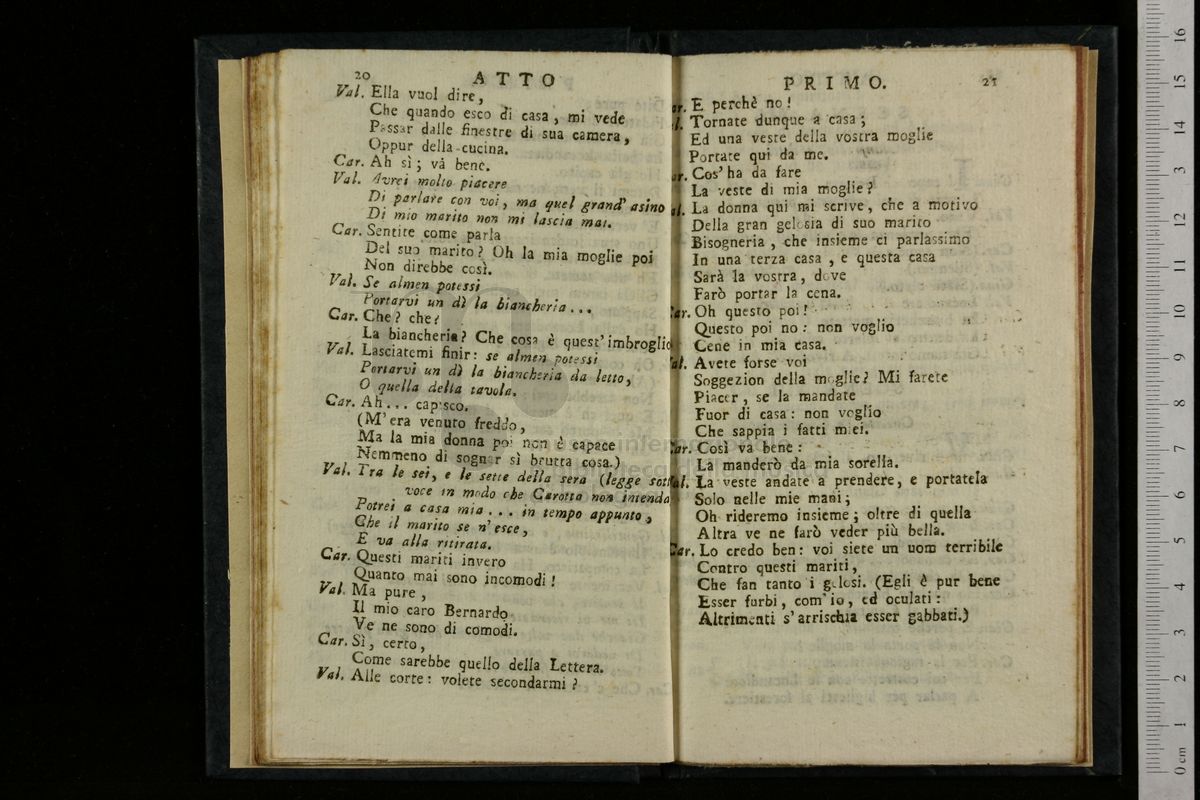 20 ATTO
Val. Ella vuol dire,
Che quando esco di casa, mi vede
Passar dalle finestre di sua camera,
Oppur della cucina.
Car. Ah sì; và bene.
Val. Avrei molto piacere
Di parlare con voi, ma quel grand' asino
Di mio marito non mi lascia mai.
Car. Sentite come parla
Del suo marito? Oh la mia moglie poi
Non direbbe così.
Val. Se almen potessi
Portarvi un dì la biancheria...
Car. Che? che?
La biancheria? Che cosa è quest' imbroglio
Val. Lasciatemi finir: se almen potessi
Portarvi un dì la biancheria da letto,
O quella della tavola.
Car. Ah... capisco.
(M' era venuto freddo,
Ma la mia donna poi non è capace
Nemmeno di sognar sì brutta cosa.)
Val. Tra le sei, e le sette della sera (legge sott
voce in modo che Carotta non intenda
Potrei a casa mia... in tempo appunto,
Che il marito se n' esce,
E va alla ritirata.
Car. Questi mariti invero
Quanto mai sono incomodi!
Val. Ma pure,
Il mio caro Bernardo
Ve ne sono di comodi.
Car. Sì, certo,
Come sarebbe quello della Lettera.
Val. Alle corte: volete secondarmi?
PRIMO. 21
ar. E perchè no!
al. Tornate dunque a casa;
Ed una veste della vostra moglie
Portate qui da me.
ar. Cos' ha da fare
La veste di mia moglie?
al. La donna qui mi scrive, che a motivo
Della gran gelosia di suo marito
Bisogneria, che insieme ci parlassimo
In una terza casa, e questa casa
Sarà la vostra, dove
Farò portar la cena.
Car. Oh questo poi!
Questo poi no: non voglio
Cene in mia casa.
Val. Avete forse voi
Soggezion della moglie? Mi farete
Piacer, se la mandate
Fuor di casa: non voglio
Che sappia i fatti miei.
Car. Così va bene:
La manderò da mia sorella.
Val. La veste andate a prendere, e portatela
Solo nelle mie mani;
Oh rideremo insieme; oltre di quella
Altra ve ne farò veder più bella.
Car. Lo credo ben: voi siete un uom terribile
Contro questi mariti,
Che fan tanto i gelosi. (Egli è pur bene
Esser furbi, com' io, ed oculati:
Altrimenti s' arrischia esser gabbati.)